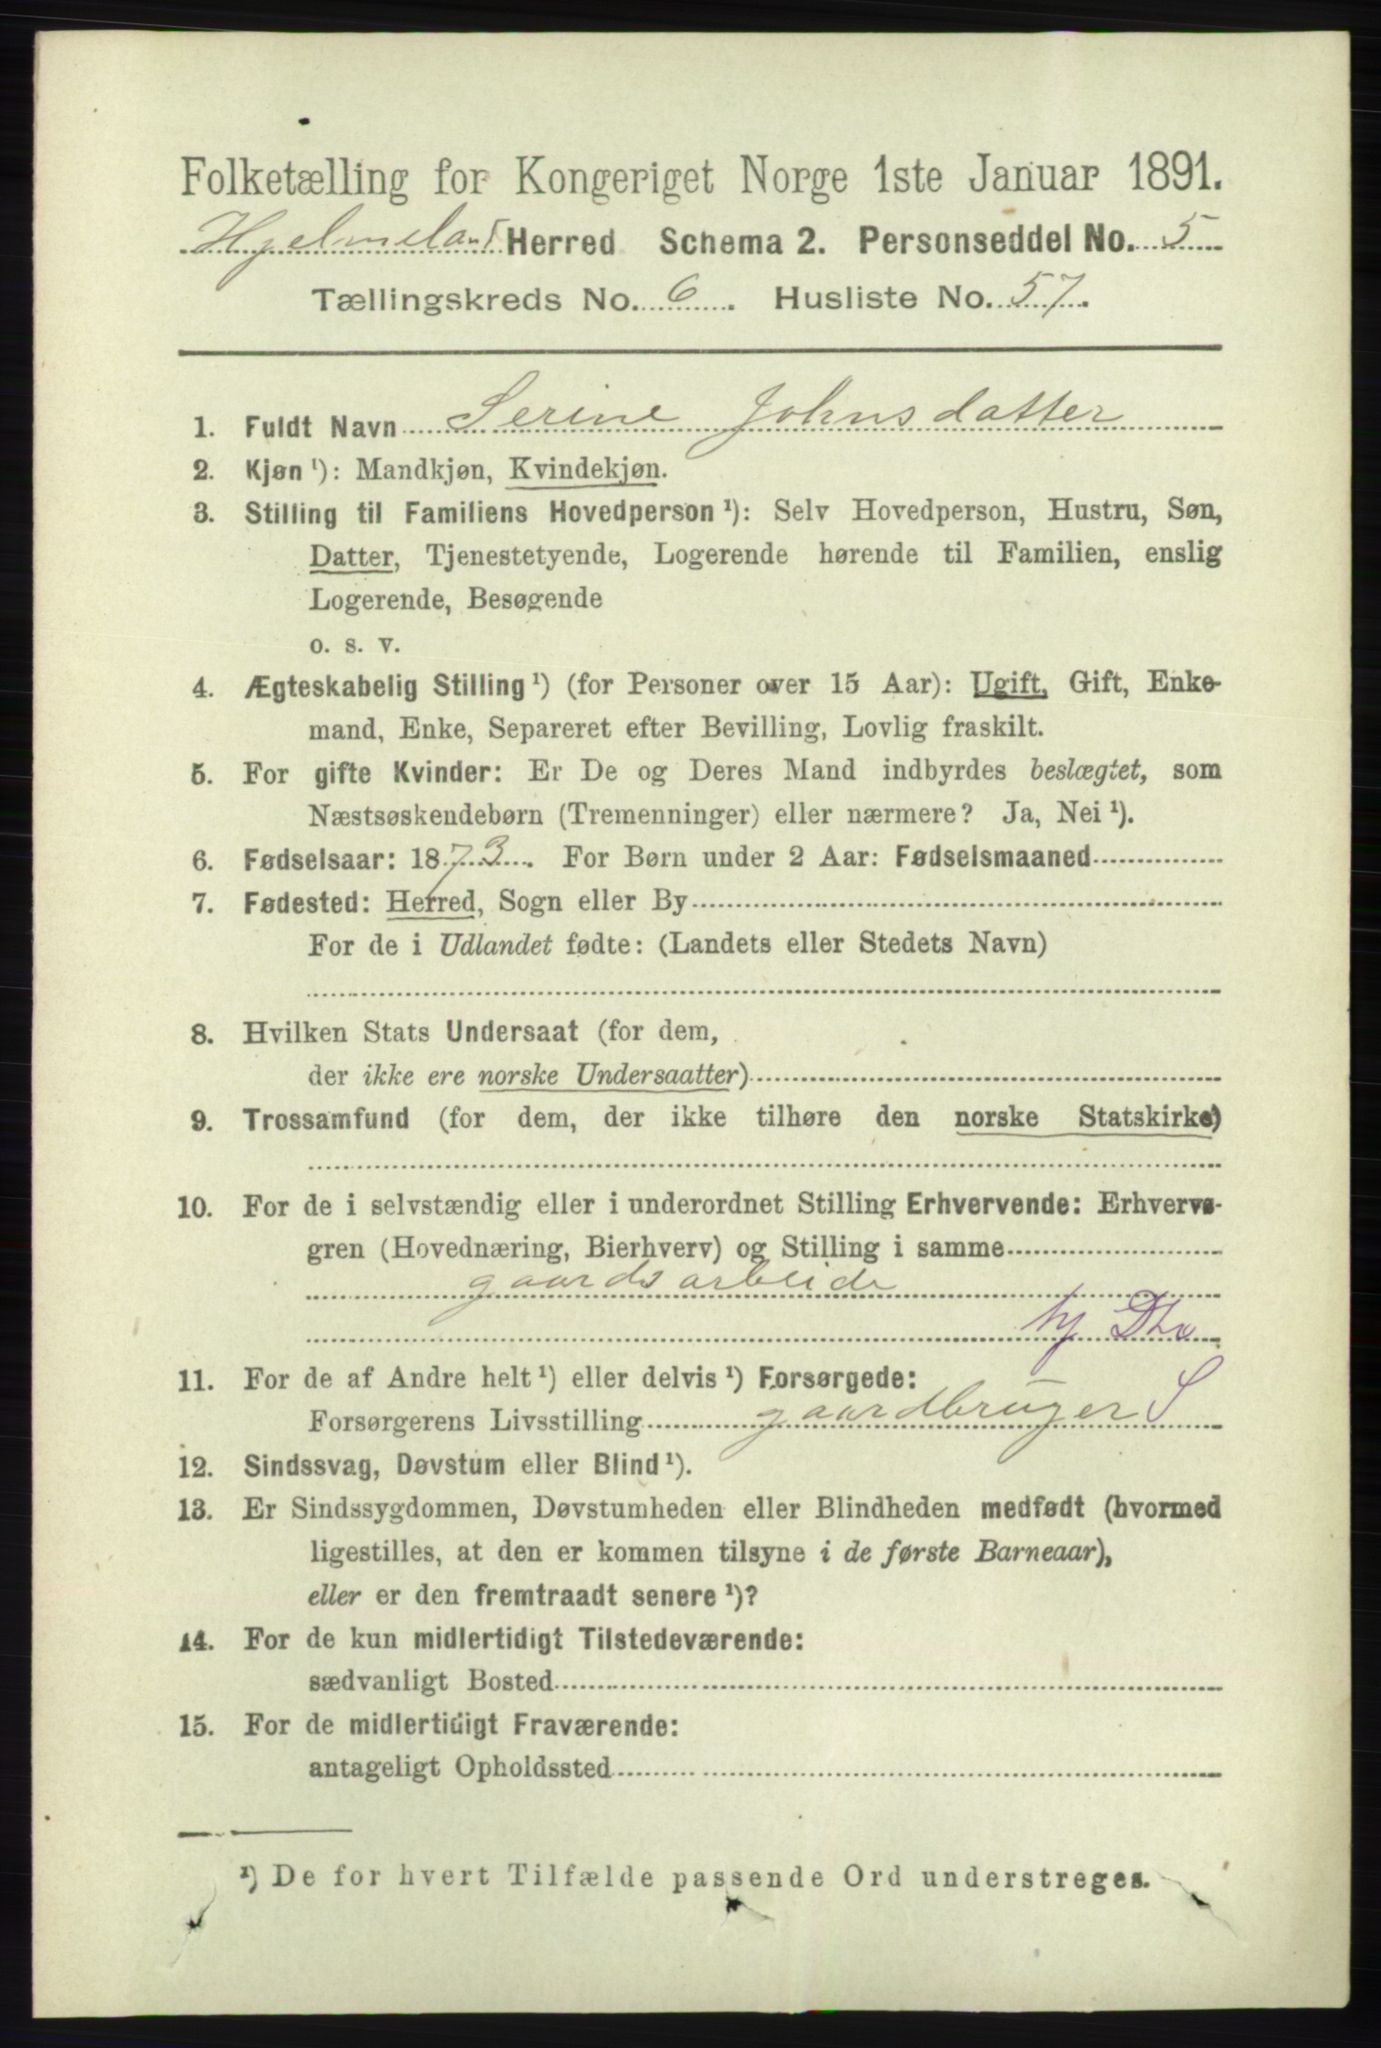 Folketælling for Kongeriget Norge 1ste Januar 1891.
Hjelmeland Herred Schema 2. Personseddel No. 5
Tællingskreds No. 6. Husliste No. 57.
1. Fuldt Navn Serine Johnsdatter
2. Kjøn ¹): Mandkjøn, Kvindekjøn.
3. Stilling til Familiens Hovedperson ¹): Selv Hovedperson, Hustru, Søn,
Datter, Tjenestetyende, Logerende hørende til Familien, enslig
Logerende, Besøgende
o. s. v.
4. Ægteskabelig Stilling ¹) (for Personer over 15 Aar): Ugift, Gift, Enke-
mand, Enke, Separeret efter Bevilling, Lovlig fraskilt.
5. For gifte Kvinder: Er De og Deres Mand indbyrdes beslægtet, som
Næstsøskendebørn (Tremenninger) eller nærmere? Ja, Nei ¹).
6. Fødselsaar: 1873. For Børn under 2 Aar: Fødselsmaaned
7. Fødested: Herred, Sogn eller By
For de i Udlandet fødte: (Landets eller Stedets Navn)
8. Hvilken Stats Undersaat (for dem,
der ikke ere norske Undersaatter)
9. Trossamfund (for dem, der ikke tilhøre den norske Statskirke)
10. For de i selvstændig eller i underordnet Stilling Erhvervende: Erhvervs-
gren (Hovednæring, Bierhverv) og Stilling i samme
gaardsarbeide
11. For de af Andre helt ¹) eller delvis ¹) Forsørgede:
Forsørgerens Livsstilling gaardbruger S
12. Sindssvag, Døvstum eller Blind ¹).
13. Er Sindssygdommen, Døvstumheden eller Blindheden medfødt (hvormed
ligestilles, at den er kommen tilsyne i de første Barneaar),
eller er den fremtraadt senere ¹)?
14. For de kun midlertidigt Tilstedeværende:
sædvanligt Bosted
15. For de midlertidigt Fraværende:
antageligt Opholdssted
¹) De for hvert Tilfælde passende Ord understreges.